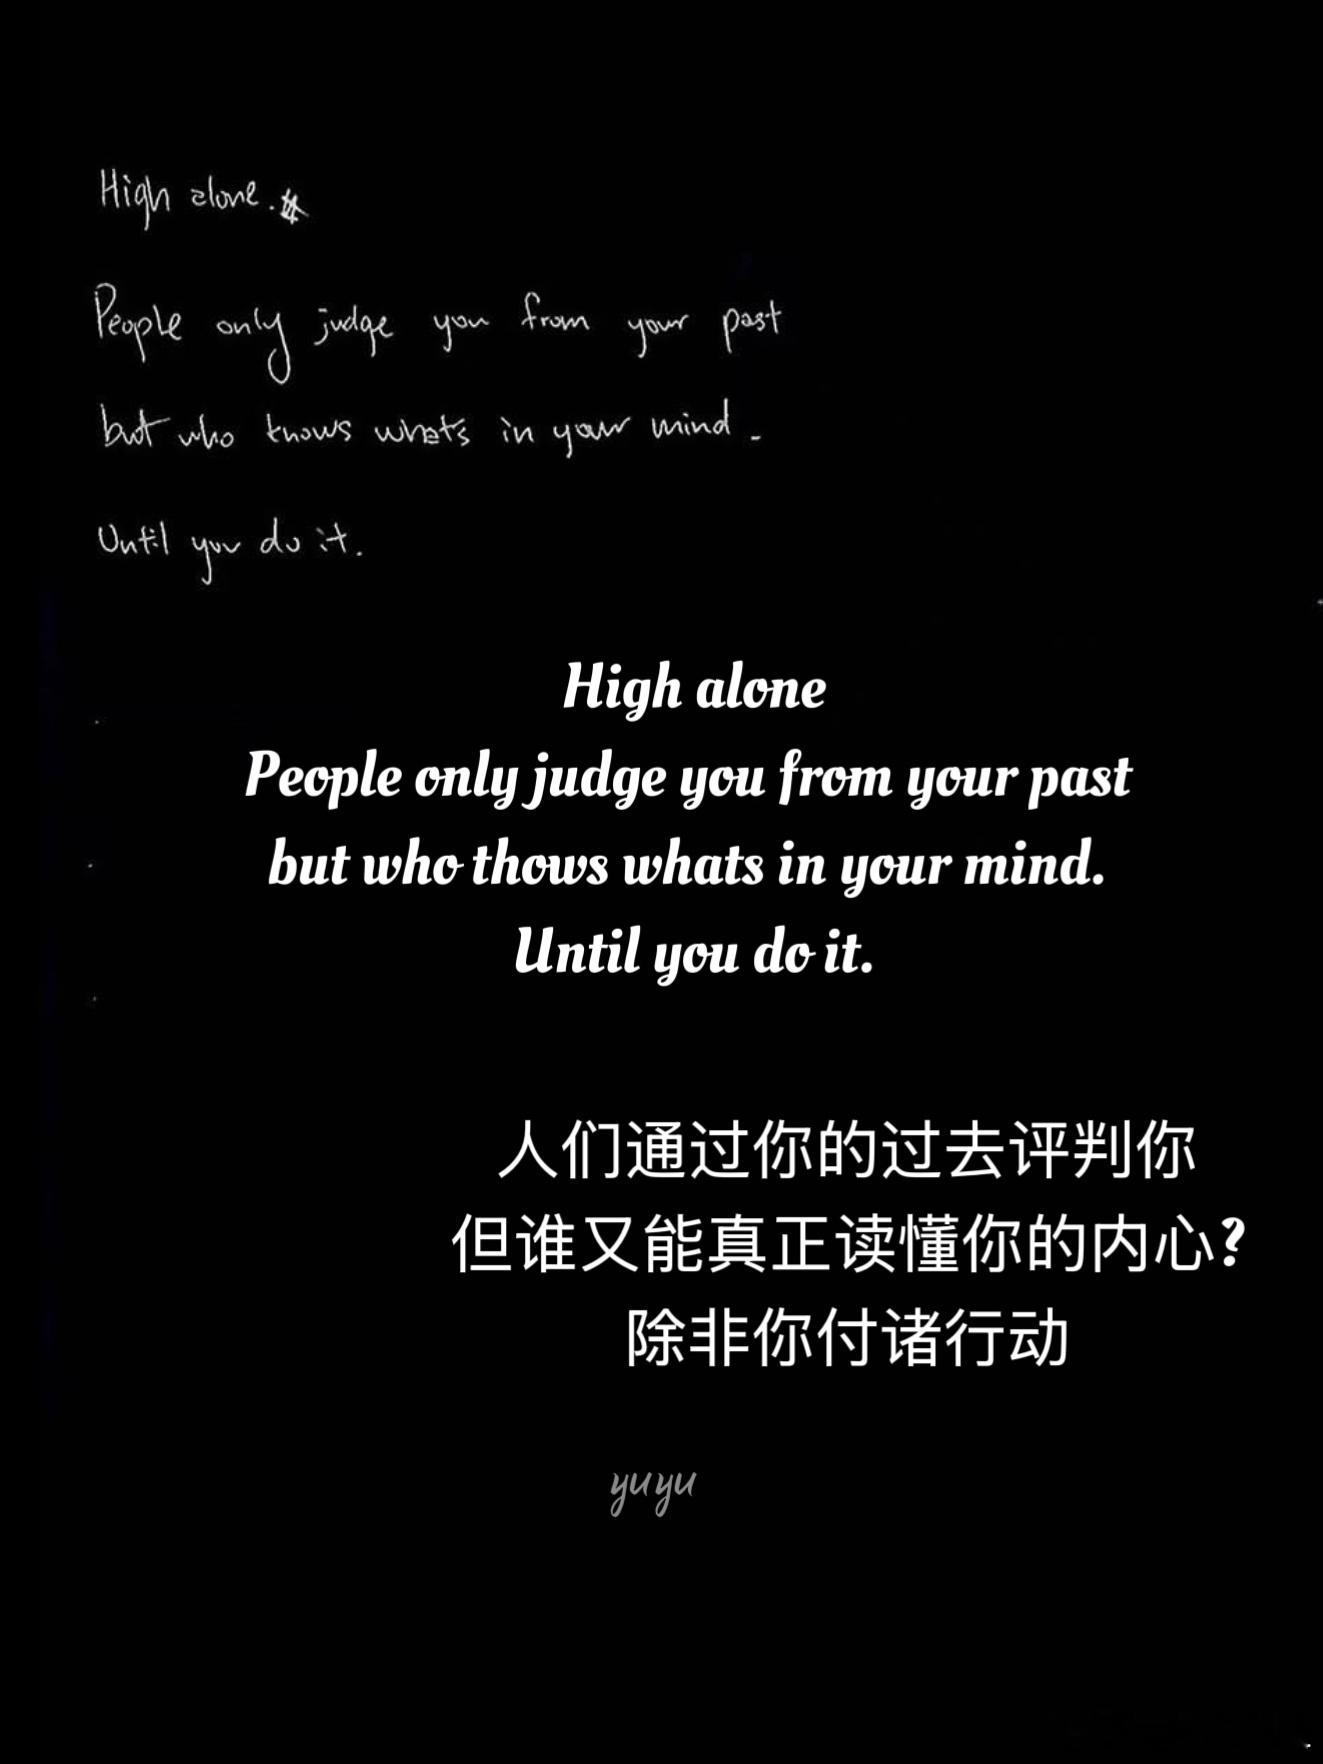 High alone.
People only judge you from your past
but who knows whats in your mind.
Until you do it.
High alone
People only judge you from your past
but who thows whats in your mind.
Until you do it.
人们通过你的过去评判你
但谁又能真正读懂你的内心?
除非你付诸行动
yuyu